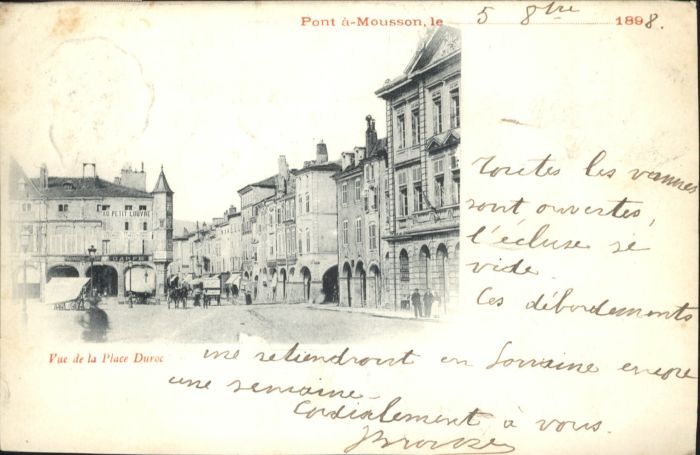 Pont à-Mousson, le 5 8bre 1898.
AU PETIT LOUVRE
Toutes les vannes
sont ouvertes,
l'écluse se
vide.
Ces débordements
Vue de la Place Duroc
me retiendront en Lorraine encore
une semaine.
Cordialement à vous.